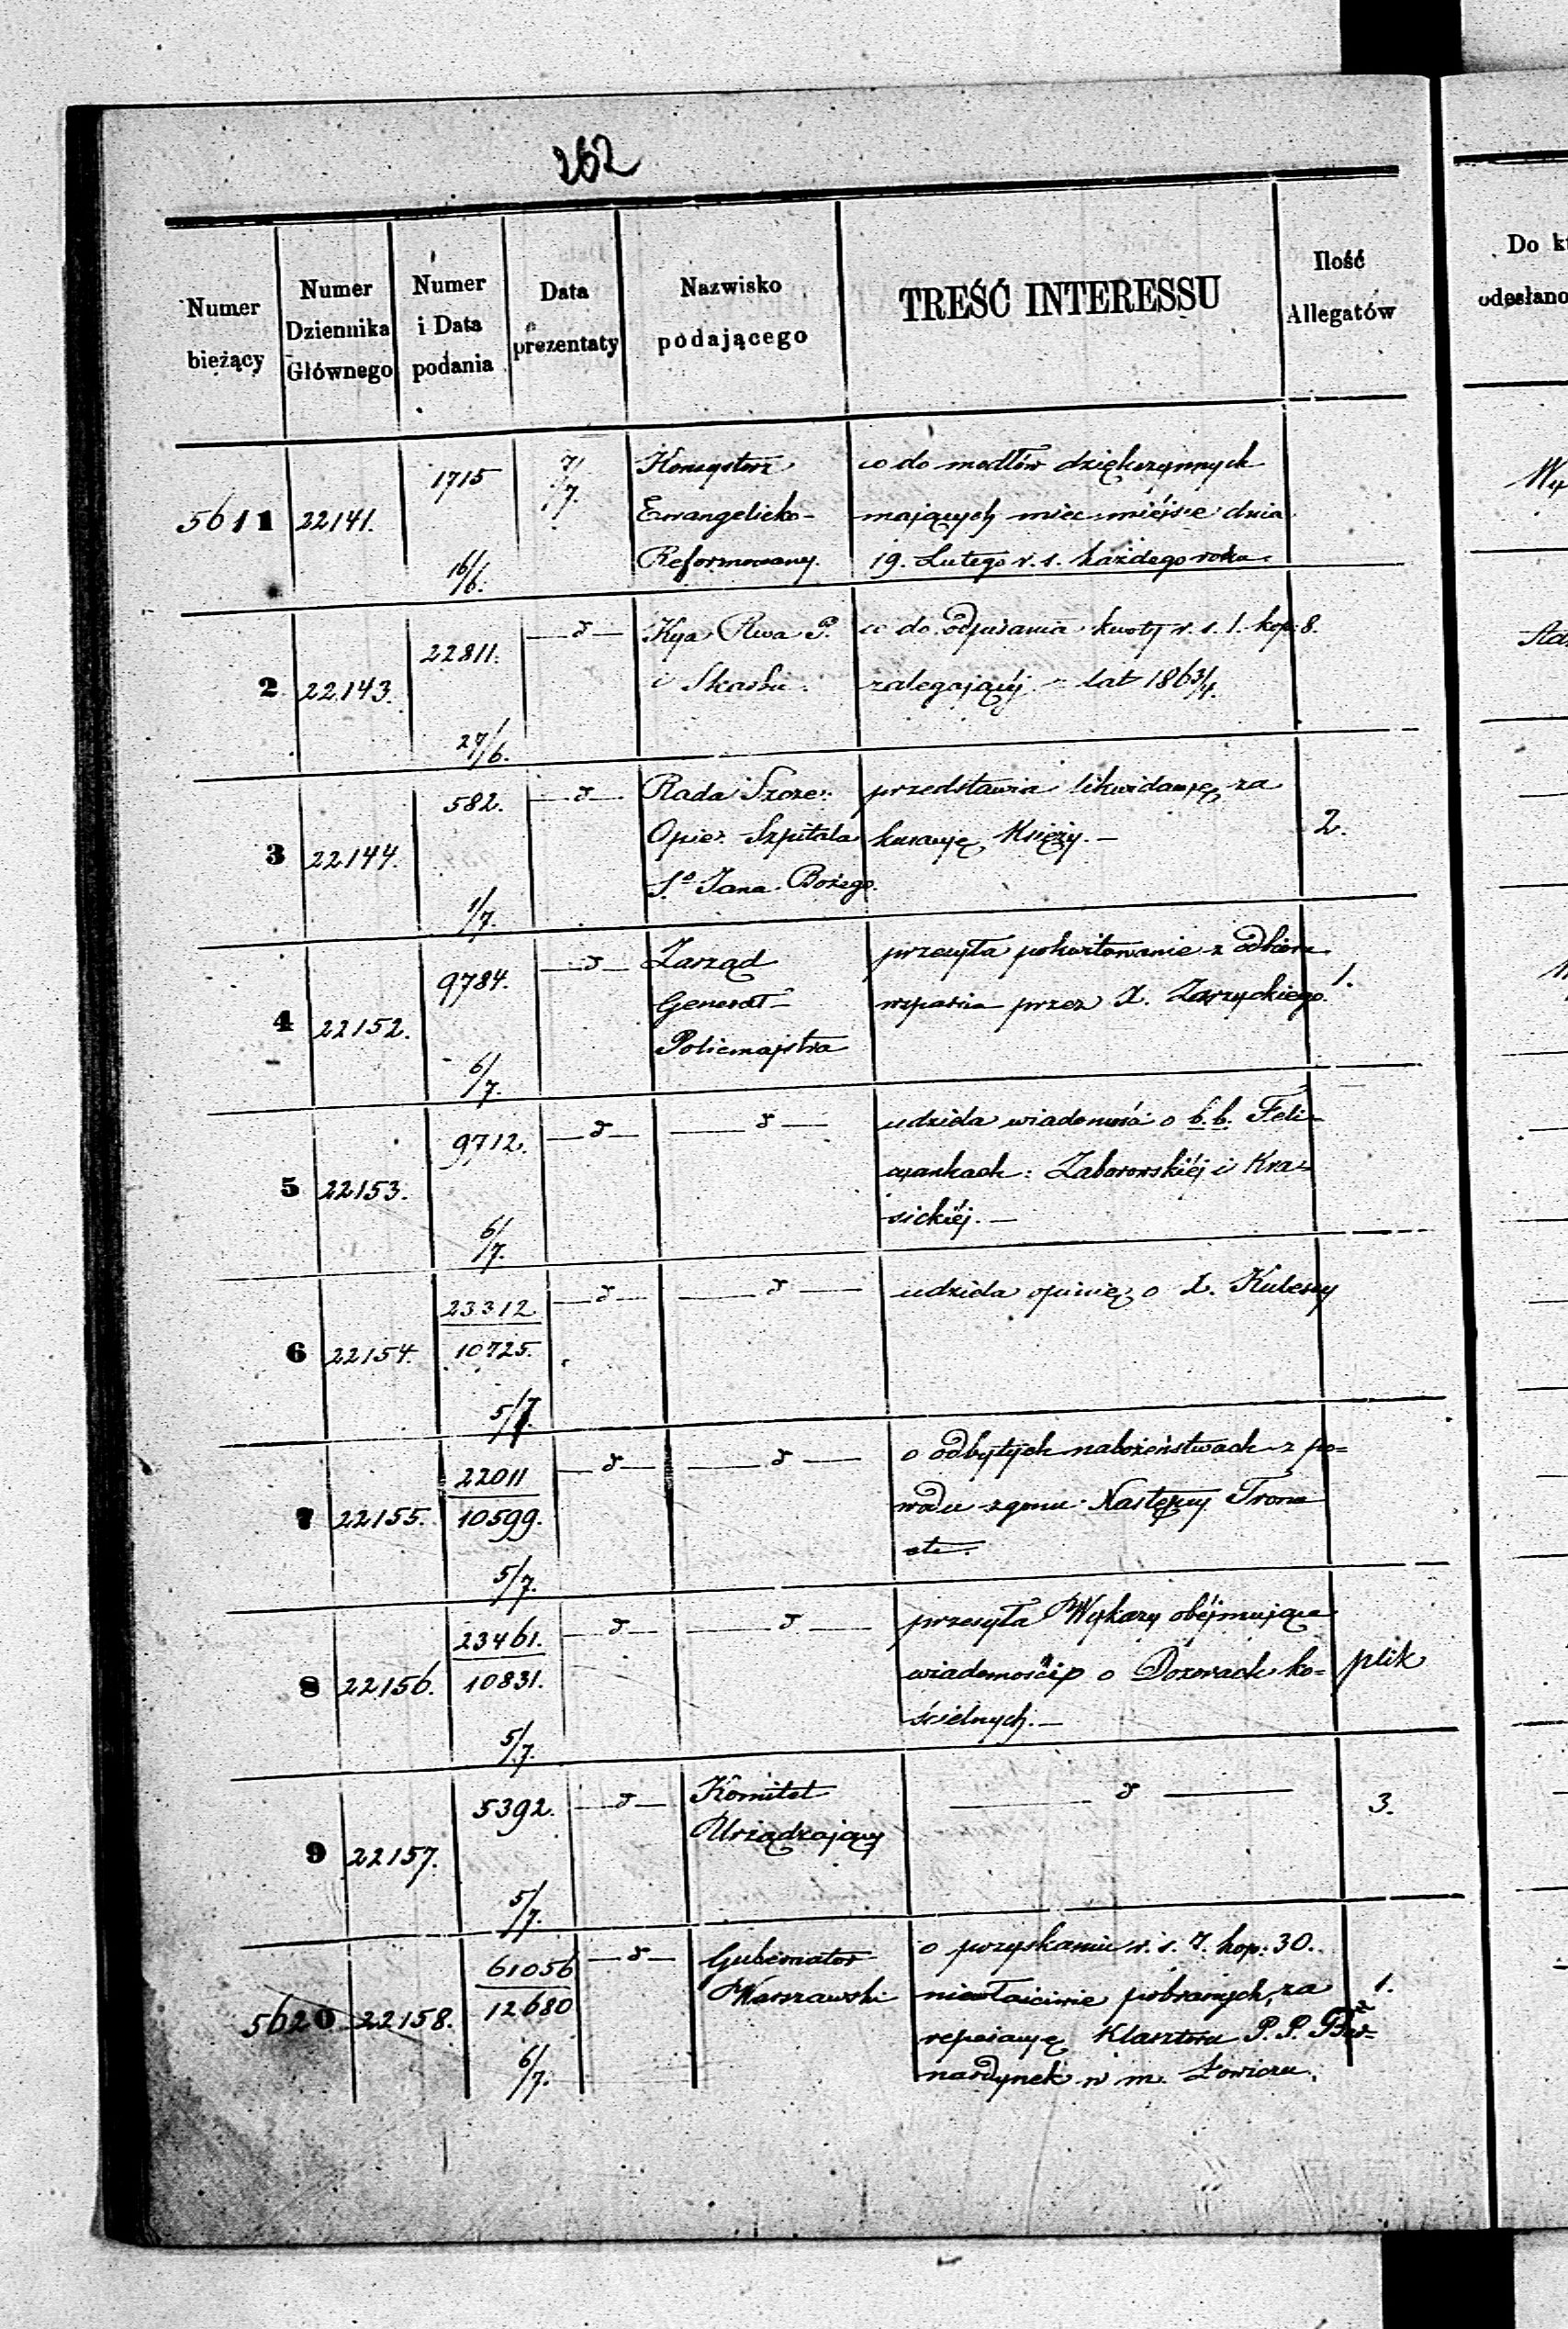 262
Numer bieżący | Numer Dziennika Głównego | Numer i Data podania | Data prezentaty | Nazwisko podającego | TREŚĆ INTERESSU | Ilość Allegatów
5611 | 22141. | 1715 16/6. | 7/7. | Konsystorz | co do modłów dziękczynnych
Ewangelicko- | mających mieć miéjsce dnia
Reformowany. | 19. Lutego v. s. każdego roku.
2 | 22143. | 22811. 27/6. | —d— | Kya Rwa P. | co do odpisania kwoty r. s. 1. kop. 8.
i Skarbu. | zalegającéj z lat 1863/4.
3 | 22144. | 582. 1/7. | —d— | Rada Szcze: | przedstawia likwidacyę za
Opie: Szpitala | kuracyę Księży. — | 2.
Sº Jana Bożego.
4 | 22152. | 9784. 6/7. | —d— | Zarząd | przesyła pokwitowanie z odbioru
Generał- | wsparcia przez X. Zarzyckiego. | 1.
Policmajstra
5 | 22153. | 9712. 6/7. | —d— | —d— | udziela wiadomość o b. b. Feli-
cyankach: Zaborowskiéj i Kra-
sickiéj. —
6 | 22154. | 23312 10725. 5/7. | —d— | —d— | udziela opinię o X. Kuleszy
7 | 22155. | 22011 10599. 5/7. | —d— | —d— | o odbytych nabożeństwach z po=
wodu zgonu Następcy Tronu
etc.
8 | 22156. | 23461. 10831. 5/7. | —d— | —d— | przesyła Wykazy obéjmujące
wiadomości o Dozorach ko= | plik
ścielnych. —
9 | 22157. | 5392. 5/7. | —d— | Komitet | —d— | 3.
Urządzający
5620 | 22158. | 61056 12680 6/7. | —d— | Gubernator | o pozyskaniu r. s. 7. kop: 30.
Warszawski | niewłaściwie pobranych, za | 1.
reperacyę Klasztoru P. P. Ber=
nardynek w m. Łowiczu.
Do k
odesłano